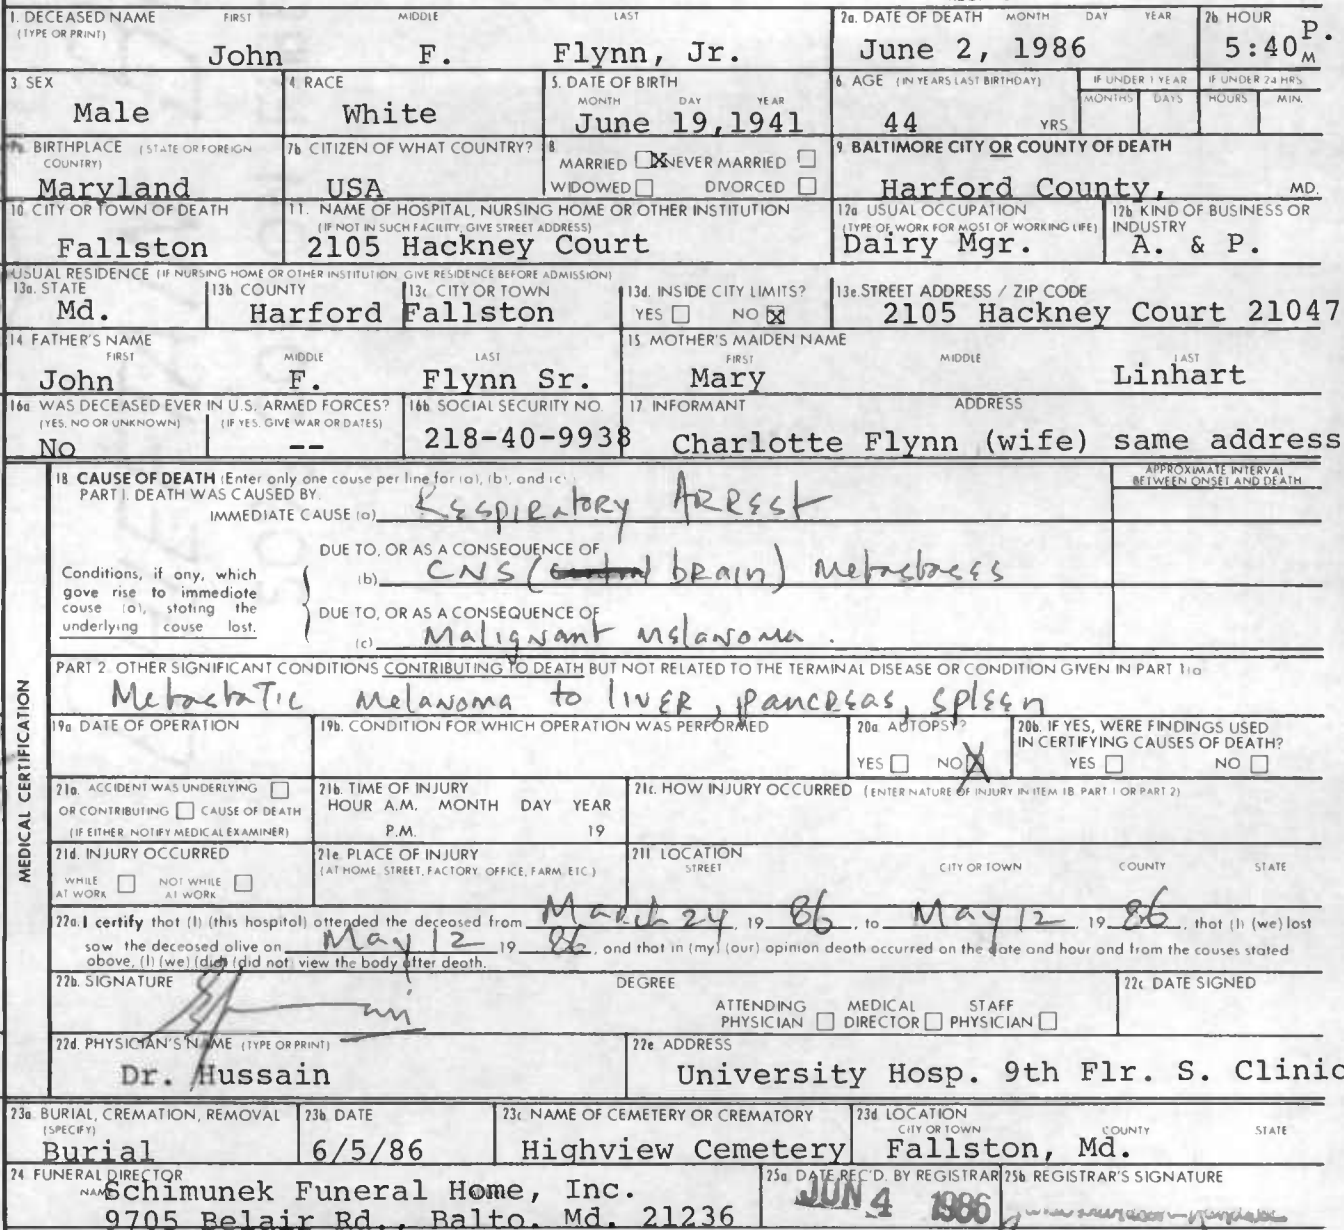 1. DECEASED NAME FIRST MIDDLE LAST
(TYPE OR PRINT)
John F. Flynn, Jr.
2a. DATE OF DEATH MONTH DAY YEAR
June 2, 1986
2b HOUR
5:40 P. M
3 SEX
Male
4 RACE
White
5. DATE OF BIRTH
MONTH DAY YEAR
June 19,1941
6 AGE (IN YEARS LAST BIRTHDAY)
44 YRS
IF UNDER 1 YEAR
MONTHS DAYS
IF UNDER 24 HRS
HOURS MIN.
BIRTHPLACE (STATE OR FOREIGN
COUNTRY)
Maryland
7b CITIZEN OF WHAT COUNTRY?
USA
8
MARRIED X NEVER MARRIED
WIDOWED DIVORCED
9 BALTIMORE CITY OR COUNTY OF DEATH
Harford County, MD.
10 CITY OR TOWN OF DEATH
Fallston
11. NAME OF HOSPITAL, NURSING HOME OR OTHER INSTITUTION
(IF NOT IN SUCH FACILITY, GIVE STREET ADDRESS)
2105 Hackney Court
12a USUAL OCCUPATION
(TYPE OF WORK FOR MOST OF WORKING LIFE)
Dairy Mgr.
12b KIND OF BUSINESS OR
INDUSTRY
A. & P.
USUAL RESIDENCE (IF NURSING HOME OR OTHER INSTITUTION GIVE RESIDENCE BEFORE ADMISSION)
13a. STATE
Md.
13b COUNTY
Harford
13c CITY OR TOWN
Fallston
13d. INSIDE CITY LIMITS?
YES NO X
13e. STREET ADDRESS / ZIP CODE
2105 Hackney Court 21047
14 FATHER'S NAME
FIRST MIDDLE LAST
John F. Flynn Sr.
15 MOTHER'S MAIDEN NAME
FIRST MIDDLE LAST
Mary Linhart
16a WAS DECEASED EVER IN U.S. ARMED FORCES?
(YES, NO OR UNKNOWN) (IF YES, GIVE WAR OR DATES)
No --
16b SOCIAL SECURITY NO.
218-40-9938
17 INFORMANT ADDRESS
Charlotte Flynn (wife) same address
18 CAUSE OF DEATH (Enter only one cause per line for (a), (b), and (c)
PART I. DEATH WAS CAUSED BY.
IMMEDIATE CAUSE (a) Respiratory Arrest
APPROXIMATE INTERVAL
BETWEEN ONSET AND DEATH
Conditions, if any, which
gave rise to immediate
cause (a), stating the
underlying cause last.
DUE TO, OR AS A CONSEQUENCE OF
(b) CNS (brain) Metastases
DUE TO, OR AS A CONSEQUENCE OF
(c) Malignant Melanoma.
PART 2 OTHER SIGNIFICANT CONDITIONS CONTRIBUTING TO DEATH BUT NOT RELATED TO THE TERMINAL DISEASE OR CONDITION GIVEN IN PART 1(a)
Metastatic Melanoma to liver, pancreas, spleen
MEDICAL CERTIFICATION
19a DATE OF OPERATION
19b. CONDITION FOR WHICH OPERATION WAS PERFORMED
20a AUTOPSY?
YES NO X
20b. IF YES, WERE FINDINGS USED
IN CERTIFYING CAUSES OF DEATH?
YES NO
21a. ACCIDENT WAS UNDERLYING
OR CONTRIBUTING CAUSE OF DEATH
(IF EITHER, NOTIFY MEDICAL EXAMINER)
21b. TIME OF INJURY
HOUR A.M. MONTH DAY YEAR
P.M. 19
21c. HOW INJURY OCCURRED (ENTER NATURE OF INJURY IN ITEM 18 PART 1 OR PART 2)
21d. INJURY OCCURRED
WHILE AT WORK NOT WHILE AT WORK
21e PLACE OF INJURY
(AT HOME, STREET, FACTORY, OFFICE, FARM, ETC.)
21f LOCATION
STREET CITY OR TOWN COUNTY STATE
22a. I certify that (I) (this hospital) attended the deceased from March 24, 19 86, to May 12 19 86, that (I) (we) last
saw the deceased alive on May 12 19 86, and that in (my) (our) opinion death occurred on the date and hour and from the causes stated
above, (I) (we) (did) (did not) view the body after death.
22b. SIGNATURE
DEGREE
ATTENDING PHYSICIAN MEDICAL DIRECTOR STAFF PHYSICIAN
22c DATE SIGNED
22d. PHYSICIAN'S NAME (TYPE OR PRINT)
Dr. Hussain
22e ADDRESS
University Hosp. 9th Flr. S. Clinic
23a BURIAL, CREMATION, REMOVAL
(SPECIFY)
Burial
23b DATE
6/5/86
23c NAME OF CEMETERY OR CREMATORY
Highview Cemetery
23d LOCATION
CITY OR TOWN COUNTY STATE
Fallston, Md.
24 FUNERAL DIRECTOR
NAME Schimunek Funeral Home, Inc.
9705 Belair Rd., Balto. Md. 21236
25a DATE REC'D. BY REGISTRAR
JUN 4 1986
25b REGISTRAR'S SIGNATURE